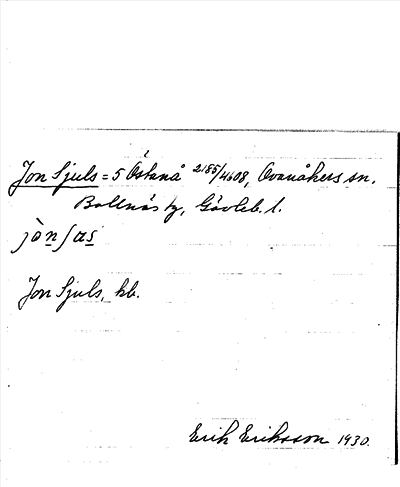 Jon Sjuls = 5 Östanå 2185/4608, Ovanåkers sn.
Bollnäs tg, Gävleb. l.
Jon Sjuls, hb.
Erik Eriksson 1930.